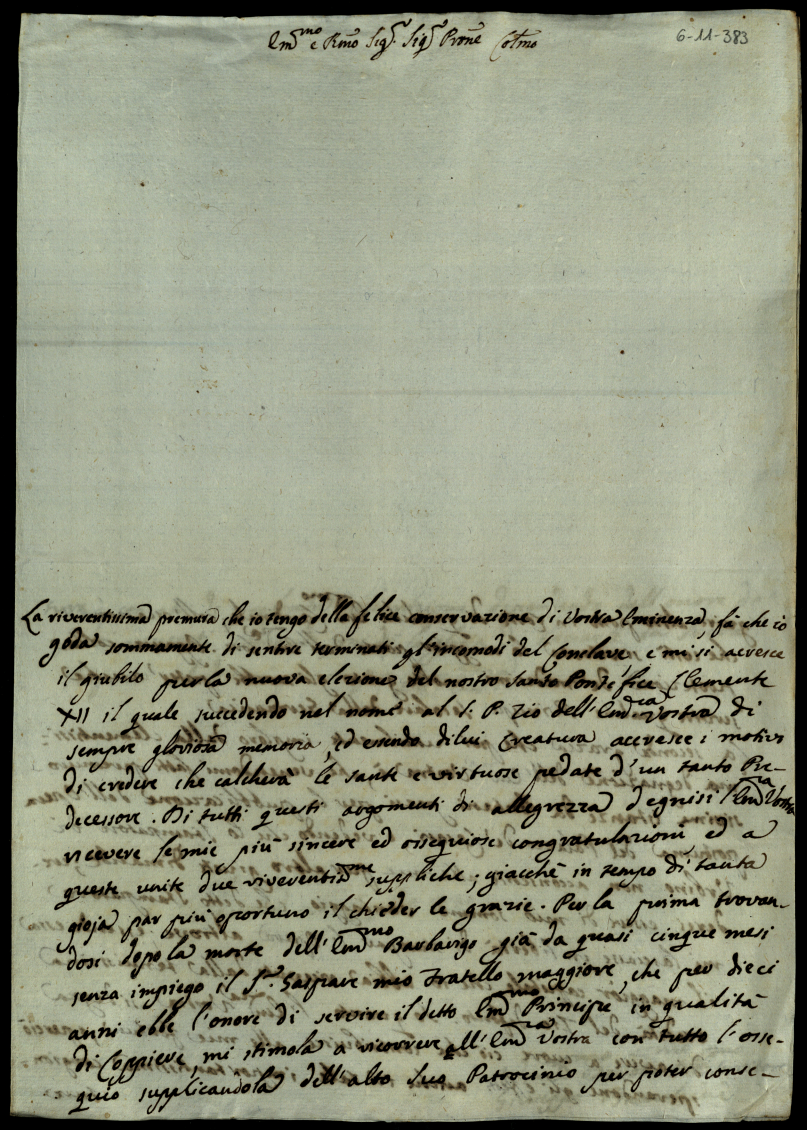 Em.mo e Rmo Sig.r Sig.r Prone Colmo
6-11-383
La riverentissima premura che io tengo della felice conservazione di Vostra Eminenza, fà che io
goda sommamente di sentire terminati gl'incomodi del Conclave e mi si accresce
il giubilo per la nuova elezione del nostro Santo Pontefice Clemente
XII il quale succedendo nel nome al S. P. Zio dell'Em.za Vostra di
sempre gloriosa memoria, ed essendo di lui Creatura accresce i motivi
di credere che calcherà le sante e virtuose pedate d'un tanto Pre-
decessore. Di tutti questi argomenti di allegrezza degnisi l'Em.za Vostra
ricevere le mie più sincere ed ossequiose congratulazioni, ed a
queste unite due riverentis.me suppliche; giacchè in tempo di tanta
gioja par più oportuno il chieder le grazie. Per la prima trovan-
dosi dopo la morte dell'Em.mo Barbarigo già da quasi cinque mesi
senza impiego il S.r Gaspare mio Fratello maggiore, che per dieci
anni ebbe l'onore di servire il detto Em.mo Principe in qualità
di Coppiere, mi stimola a ricorrere all'Em.za Vostra con tutto l'osse-
quio supplicandola dell'alto Suo Patrocinio per poter conse-